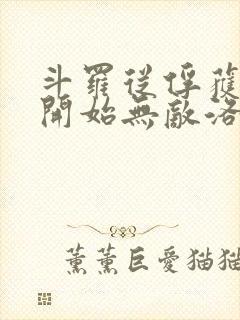 斗羅從俘獲
開始無敵洛
薰薰巨愛猫猫